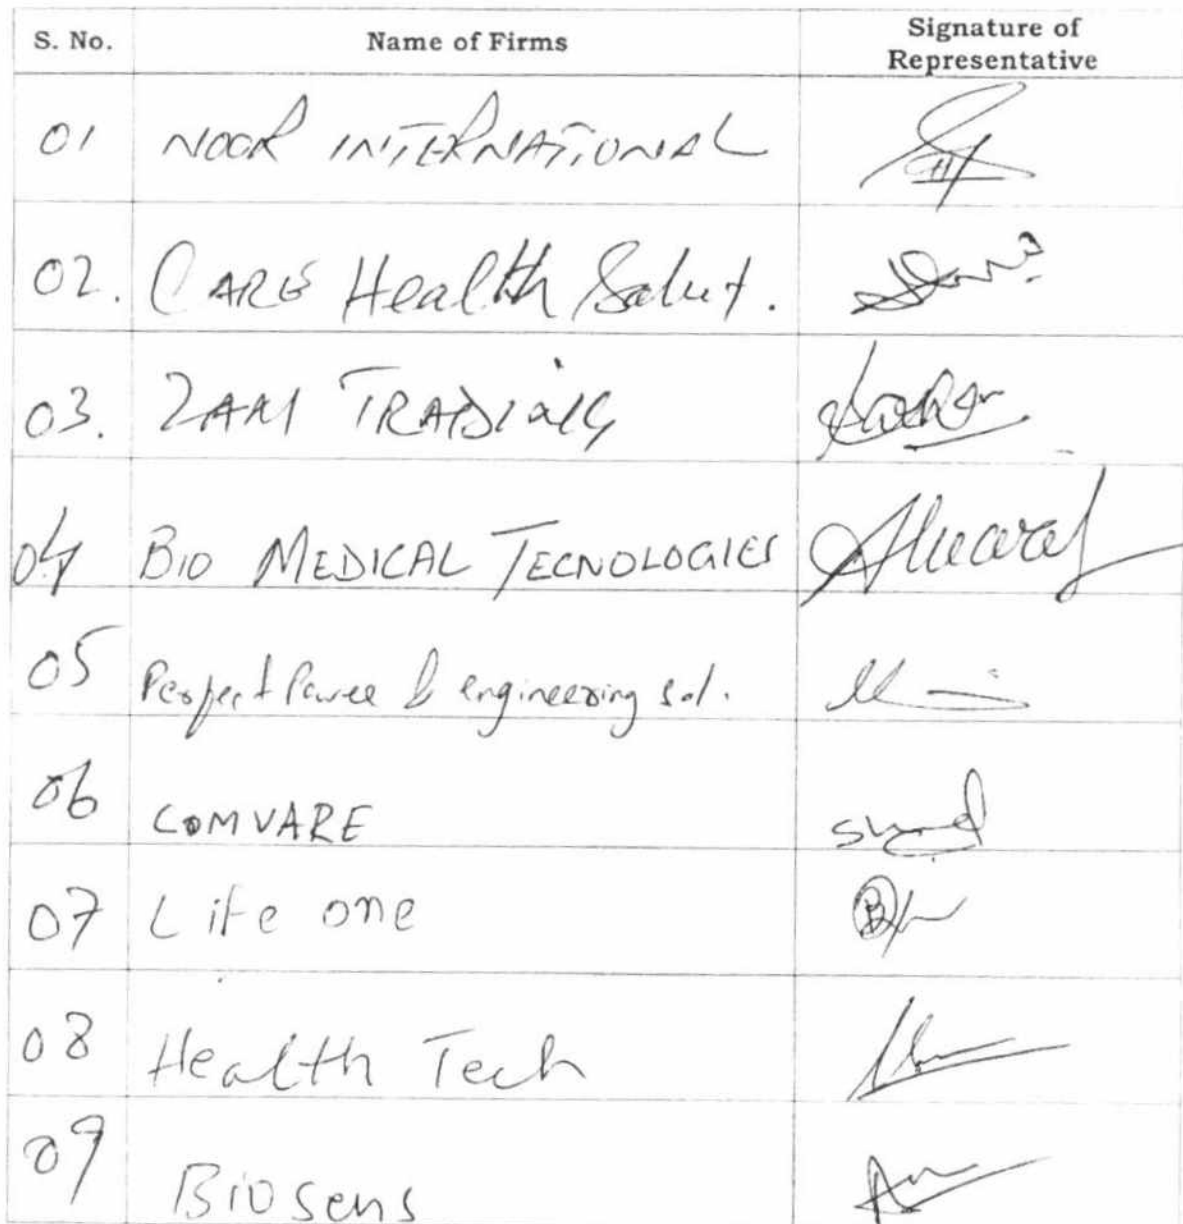 S. No. Name of Firms Signature of Representative
01 NOOR INTERNATIONAL
02. CARE Health Solut.
03. ZAM TRADING
04 BIO MEDICAL TECNOLOGIES
05 Perfect Power & engineering sol.
06 COMVARE
07 Life one
08 Health Tech
09 Biosens